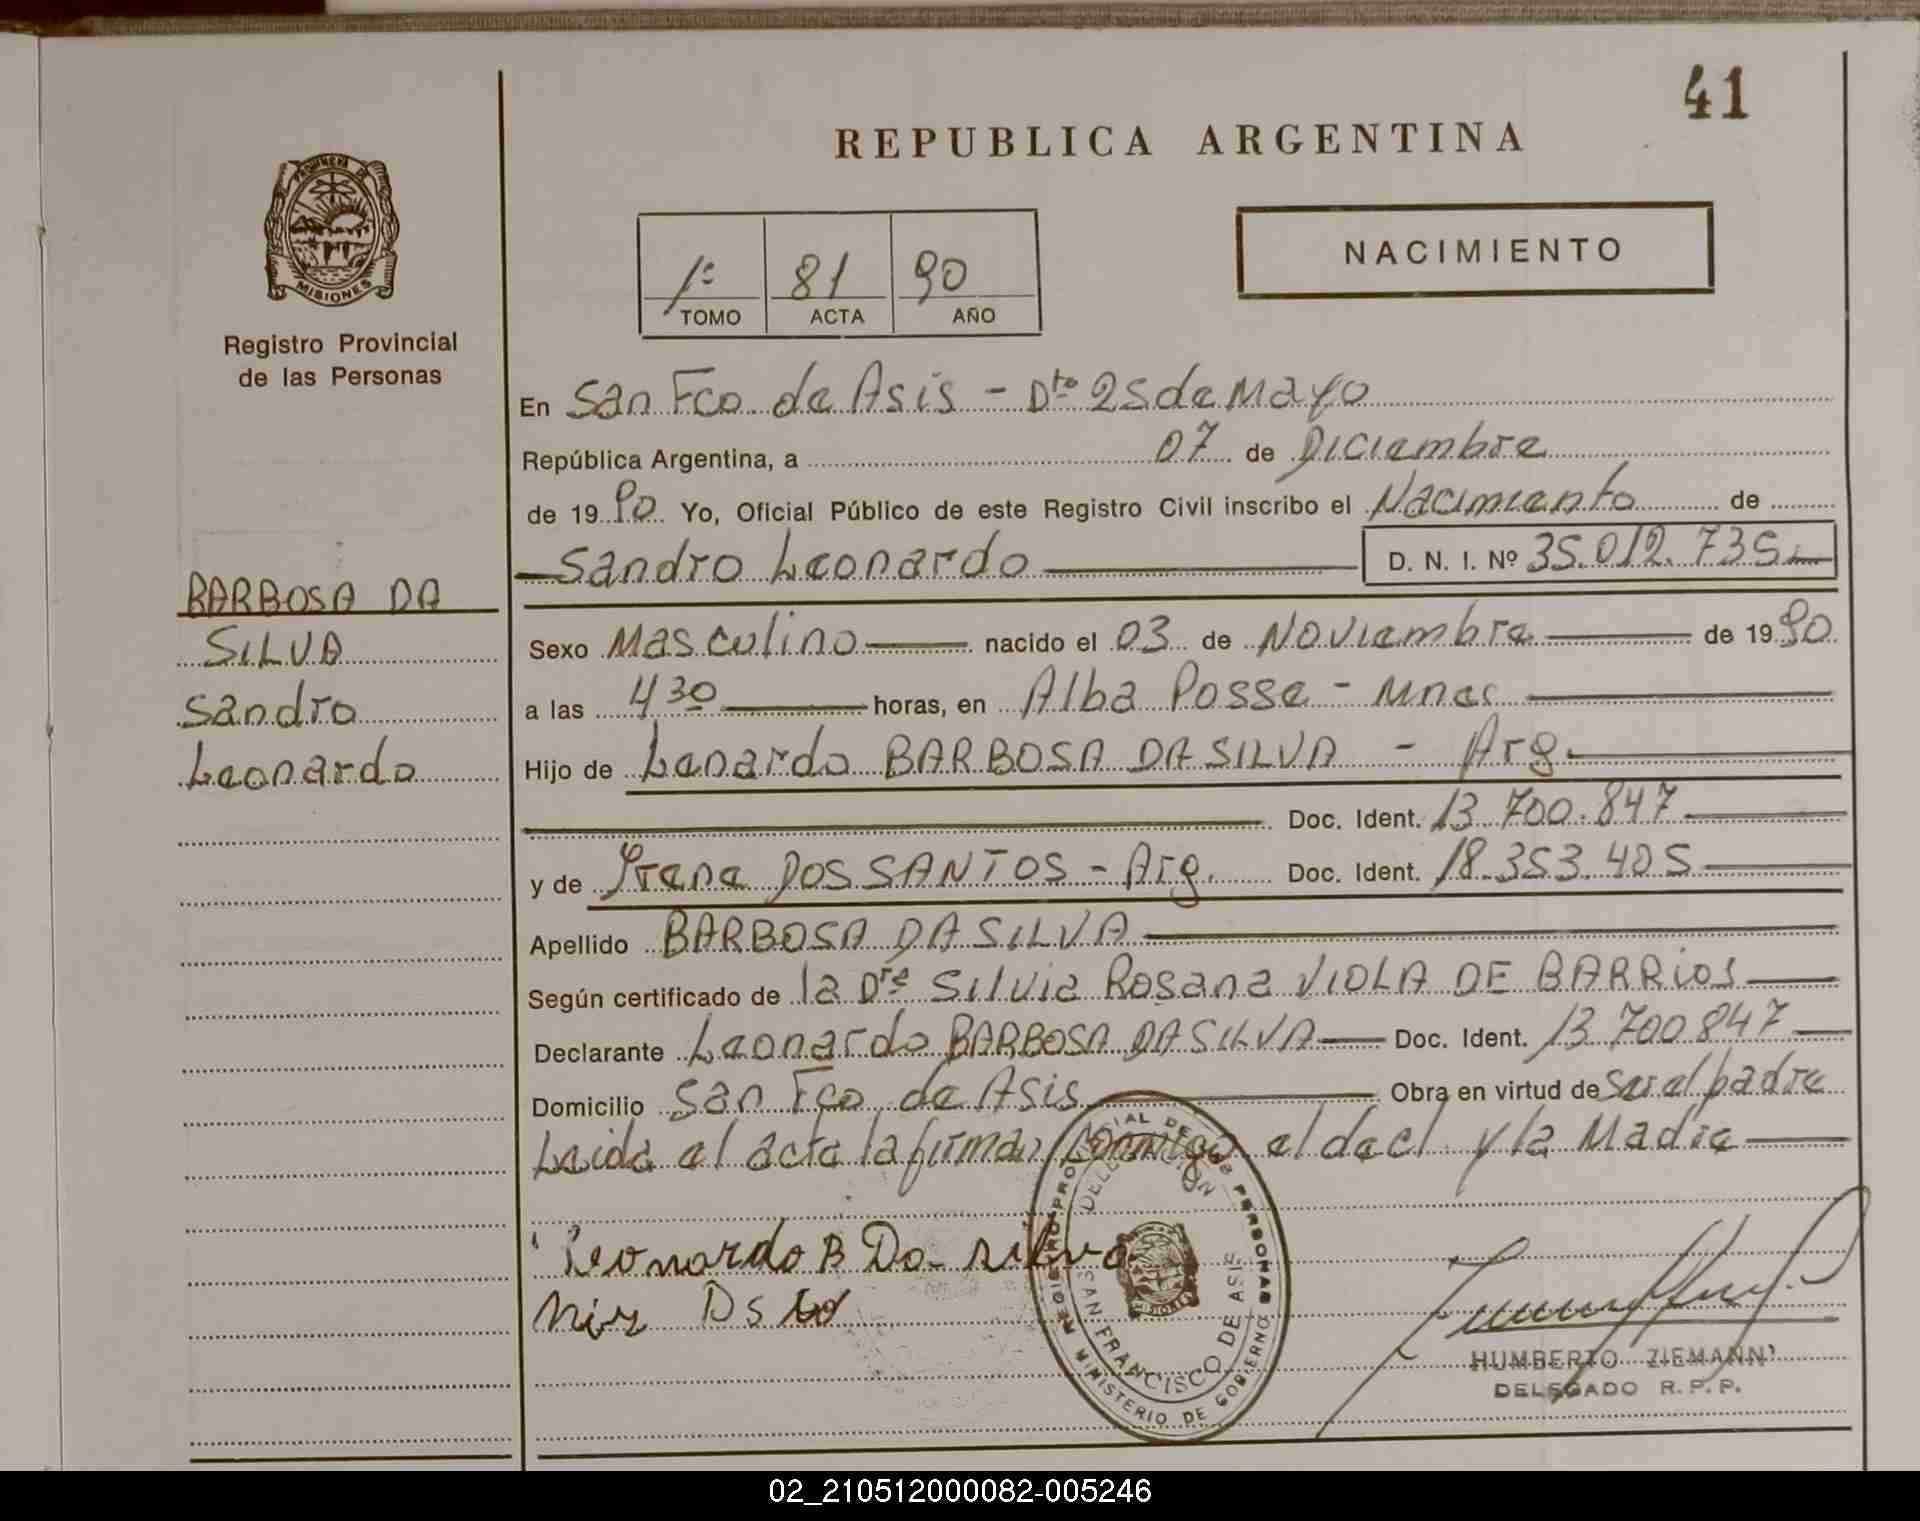 41
REPUBLICA ARGENTINA
PROVINCIA DE
MISIONES
Registro Provincial
de las Personas
1º 81 90
TOMO ACTA AÑO
NACIMIENTO
En San Fco. de Asis - Dto 25 de Mayo
República Argentina, a 07 de Diciembre
de 1990 Yo, Oficial Público de este Registro Civil inscribo el Nacimiento de
Sandro Leonardo D. N. I. Nº 35.012.735
BARBOSA DA
SILVA
Sandro
Leonardo
Sexo Masculino nacido el 03 de Noviembre de 1990
a las 4 30 horas, en Alba Posse - Mnes
Hijo de Lenardo BARBOSA DA SILVA - Arg.
Doc. Ident. 13.700.847
y de DOS SANTOS - Arg. Doc. Ident. 18.353.405
Apellido BARBOSA DA SILVA
Según certificado de la Dra Silvia Rosana VIOLA DE BARRIOS
Declarante Leonardo BARBOSA DA SILVA Doc. Ident. 13 700 847
Domicilio San Fco. de Asis Obra en virtud de ser el padre
Leida el acta la firman conmigo el decl. y la Madre
Leonardo B Da Silva
REGISTRO PROVINCIAL DE LAS PERSONAS
DELEGACION
SAN FRANCISCO DE ASIS
MISIONES
MINISTERIO DE GOBIERNO
HUMBERTO ZIEMANN
DELEGADO R. P. P.
02_210512000082-005246